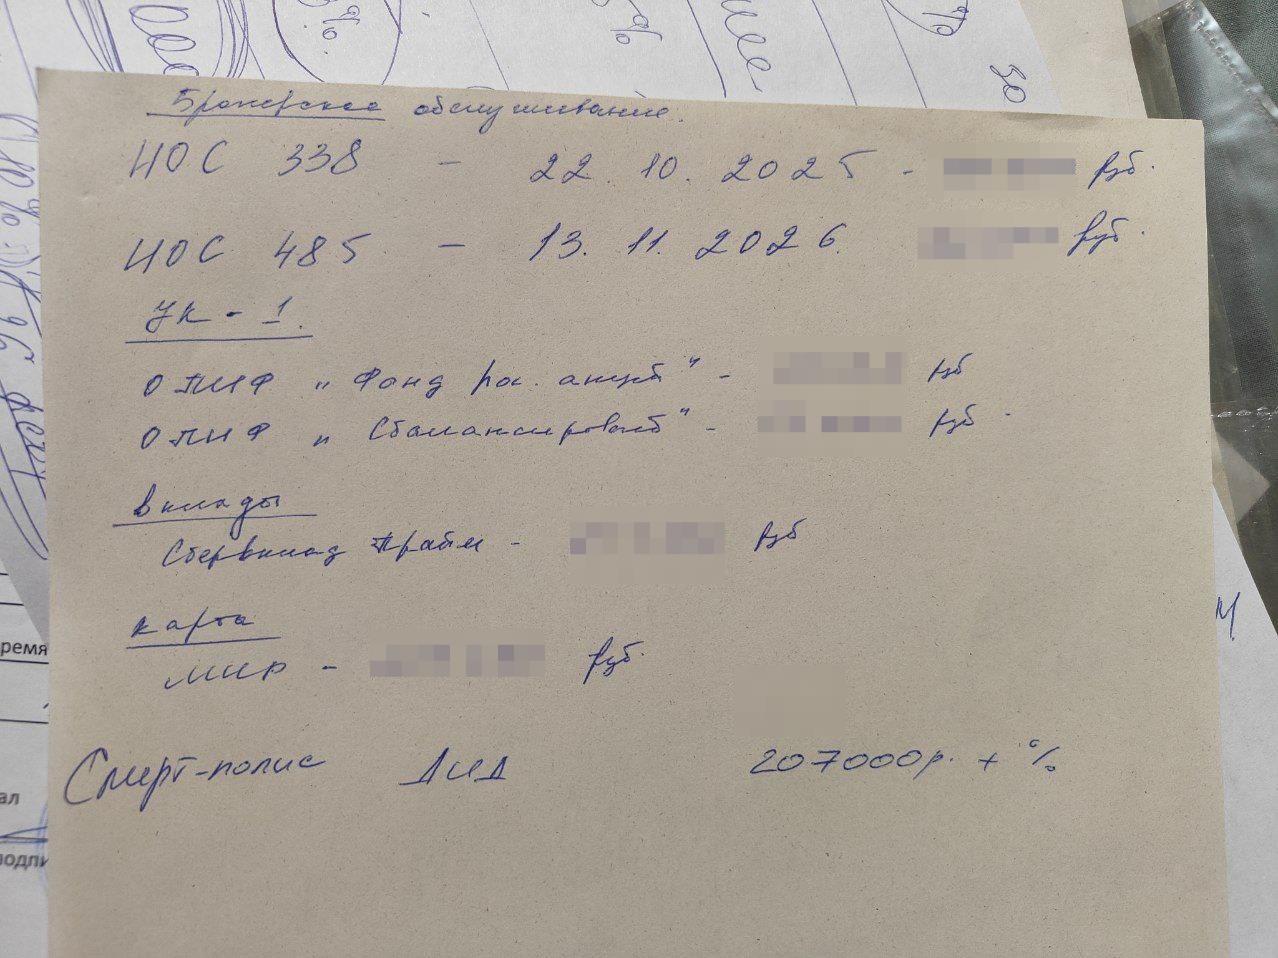 Брокерское обслуживание.
ИОС 338 - 22.10.2025 - руб.
ИОС 485 - 13.11.2026. руб.
УК - 1.
ОПИФ "Фонд рос. акций" - руб
ОПИФ "Сбалансированный" - руб.
вклады
Сбервклад Прайм - руб
карта
МИР - руб.
Смарт-полис ДИД 207000р. + %
ремя
ал
подпи
30